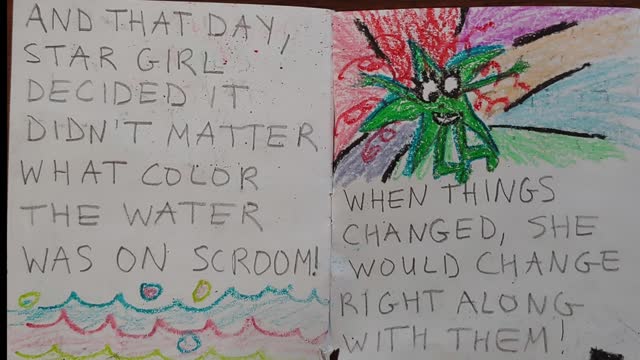 AND THAT DAY,
STAR GIRL
DECIDED IT
DIDN'T MATTER
WHAT COLOR
THE WATER
WAS ON SCROOM!
WHEN THINGS
CHANGED, SHE
WOULD CHANGE
RIGHT ALONG
WITH THEM!